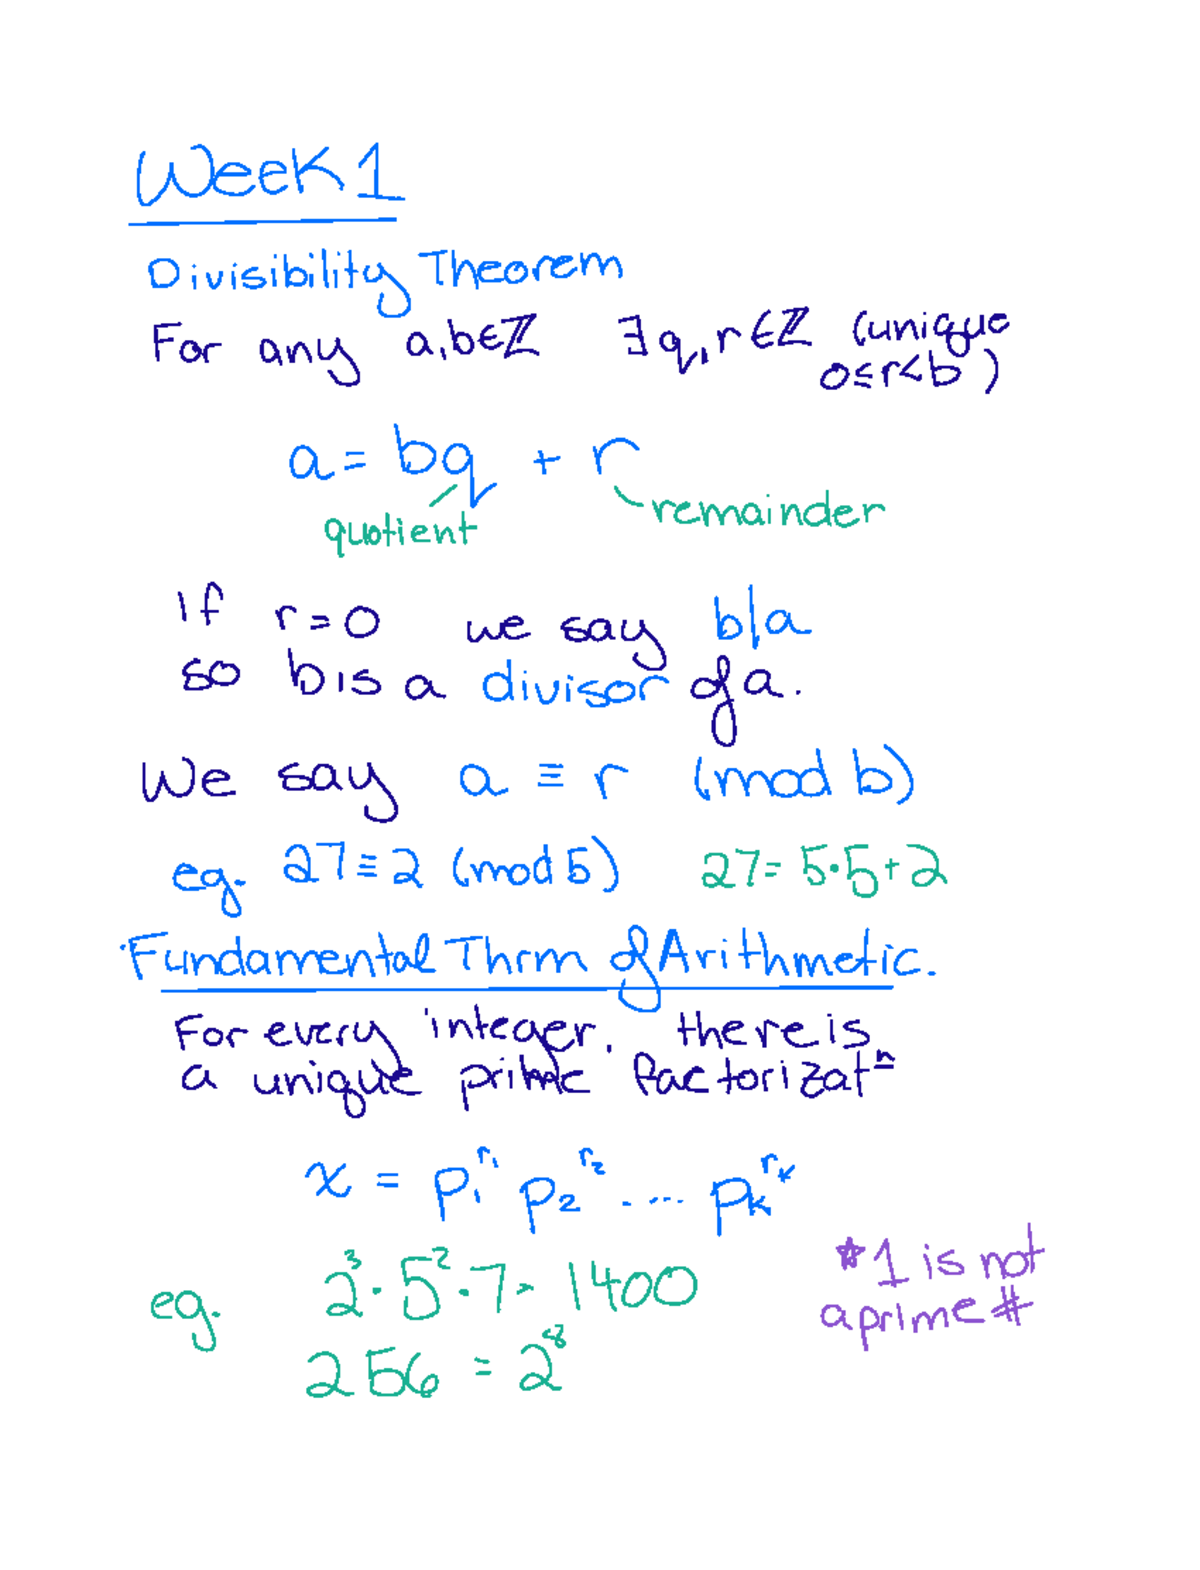 Week 1
Divisibility Theorem
For any a,b∈ℤ ∃q,r∈ℤ (unique
0≤r<b)
a = bq + r
quotient
remainder
If r=0 we say b|a
so b is a divisor of a.
We say a ≡ r (mod b)
eg. 27≡2 (mod 5) 27= 5·5+2
Fundamental Thrm of Arithmetic.
For every integer, there is
a unique prime factorizatⁿ
x = p₁^r₁ p₂^r₂ ..... pₖ^rₖ
eg. 2³·5²·7= 1400
256 = 2⁸
*1 is not
a prime #